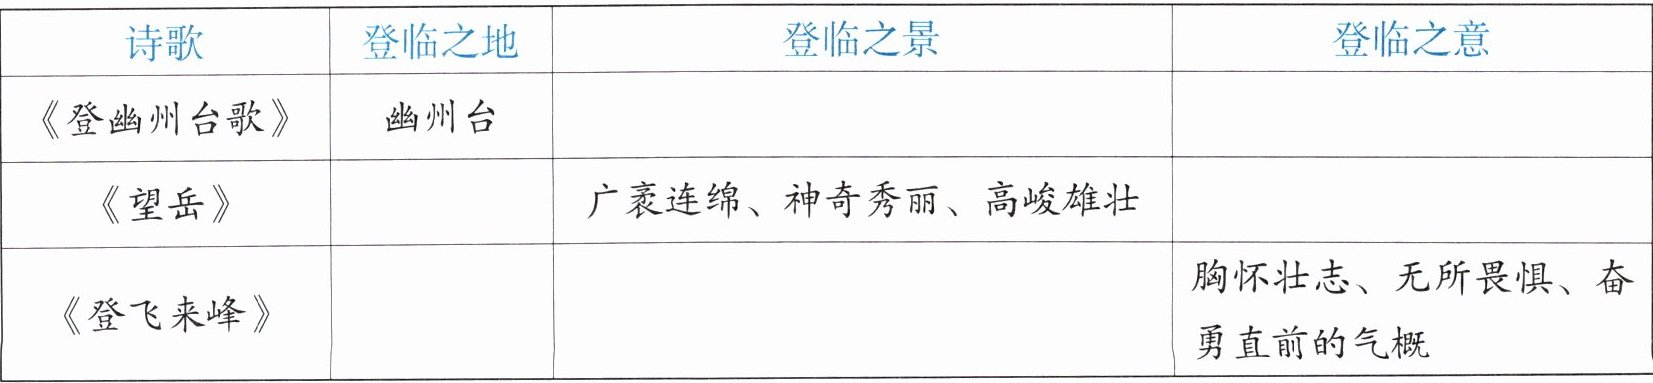 诗歌 登临之地 登临之景 登临之意
《登幽州台歌》 幽州台
《望岳》 广袤连绵、神奇秀丽、高峻雄壮
《登飞来峰》 胸怀壮志、无所畏惧、奋
勇直前的气概